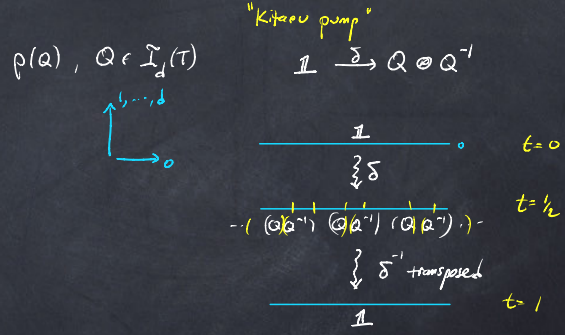 "Kitaev pump"
ρ(Q), Q ∈ I_d(T)
𝟙 —δ→ Q ⊗ Q⁻¹
1, ..., d
0
𝟙
0
t=0
δ
t=½
--( (Q)(Q⁻¹) (Q)(Q⁻¹) (Q)(Q⁻¹) ·)--
δ⁻¹ transposed
t=1
𝟙